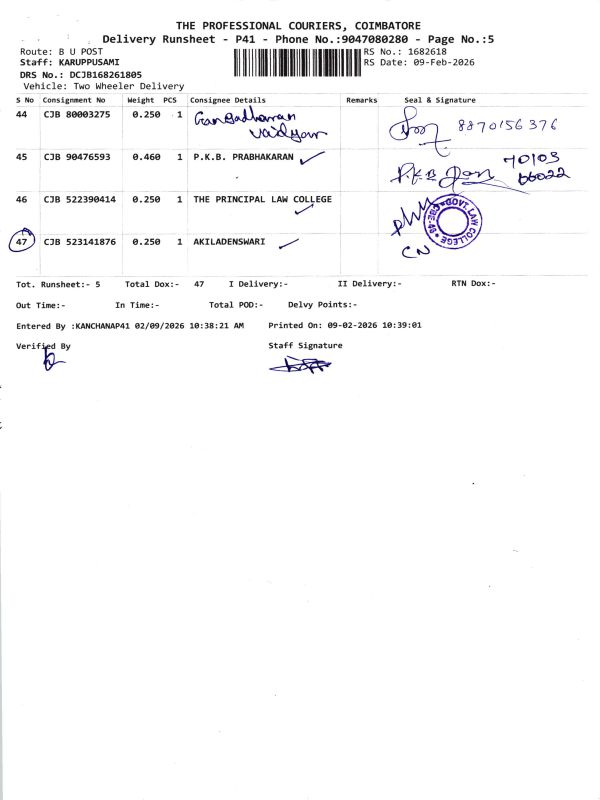 THE PROFESSIONAL COURIERS, COIMBATORE
Delivery Runsheet - P41 - Phone No.:9047080280 - Page No.:5
Route: B U POST RS No.: 1682618
Staff: KARUPPUSAMI RS Date: 09-Feb-2026
DRS No.: DCJB168261805
Vehicle: Two Wheeler Delivery
S No Consignment No Weight PCS Consignee Details Remarks Seal & Signature
44 CJB 80003275 0.250 1 Gangadharan 8870156376
Vaidyar
45 CJB 90476593 0.460 1 P.K.B. PRABHAKARAN 70103
P.K.B 66022
46 CJB 522390414 0.250 1 THE PRINCIPAL LAW COLLEGE
GOVT. LAW COLLEGE
47 CJB 523141876 0.250 1 AKILADENSWARI
CN
Tot. Runsheet:- 5 Total Dox:- 47 I Delivery:- II Delivery:- RTN Dox:-
Out Time:- In Time:- Total POD:- Delvy Points:-
Entered By :KANCHANAP41 02/09/2026 10:38:21 AM Printed On: 09-02-2026 10:39:01
Verified By Staff Signature